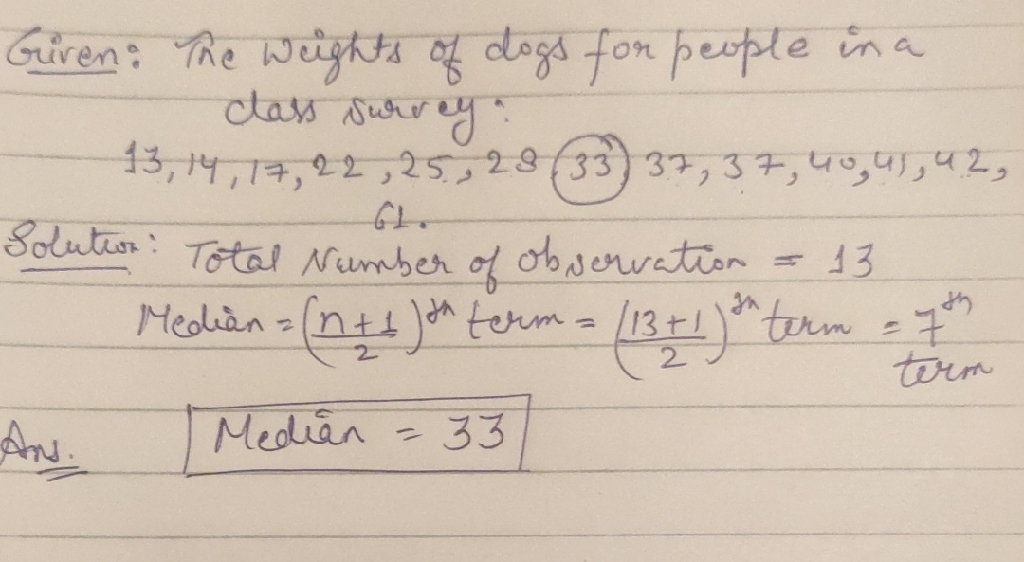 Given: The Weights of dogs for people in a
class survey:
13, 14, 17, 22, 25, 29 33 37, 37, 40, 41, 42,
61.
Solution: Total Number of observation = 13
Median = (n+1/2)th term = (13+1/2)th term = 7th
term
Ans. Median = 33